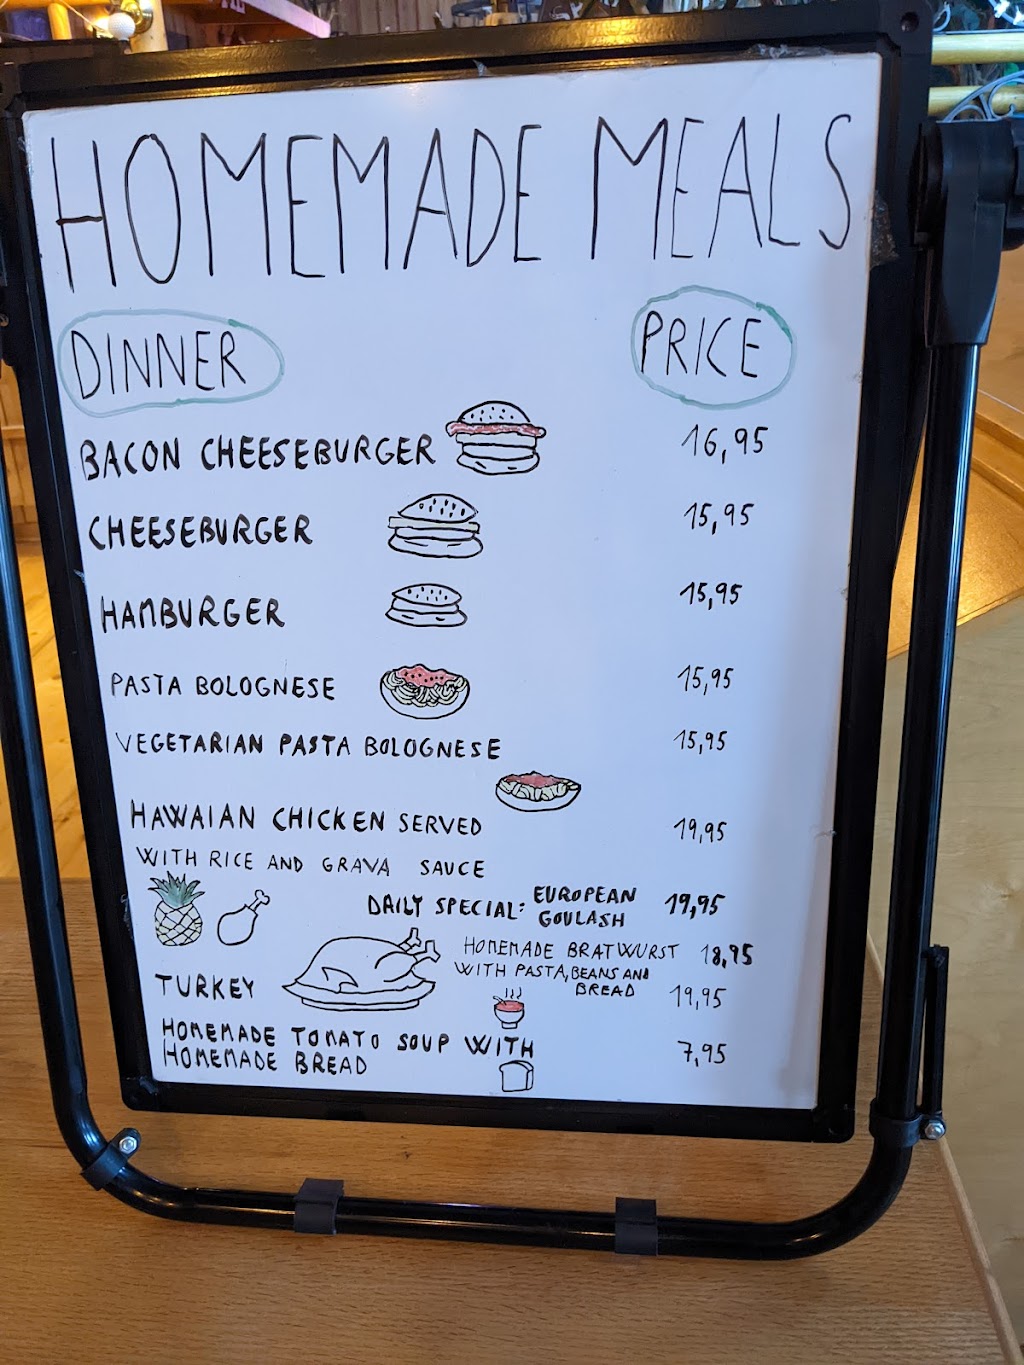 HOMEMADE MEALS
DINNER PRICE
BACON CHEESEBURGER 16,95
CHEESEBURGER 15,95
HAMBURGER 15,95
PASTA BOLOGNESE 15,95
VEGETARIAN PASTA BOLOGNESE 15,95
HAWAIAN CHICKEN SERVED 19,95
WITH RICE AND GRAVA SAUCE
DAILY SPECIAL: EUROPEAN 19,95
GOULASH
HOMEMADE BRATWURST 18,95
WITH PASTA, BEANS AND
BREAD
TURKEY 19,95
HOMEMADE TOMATO SOUP WITH 7,95
HOMEMADE BREAD